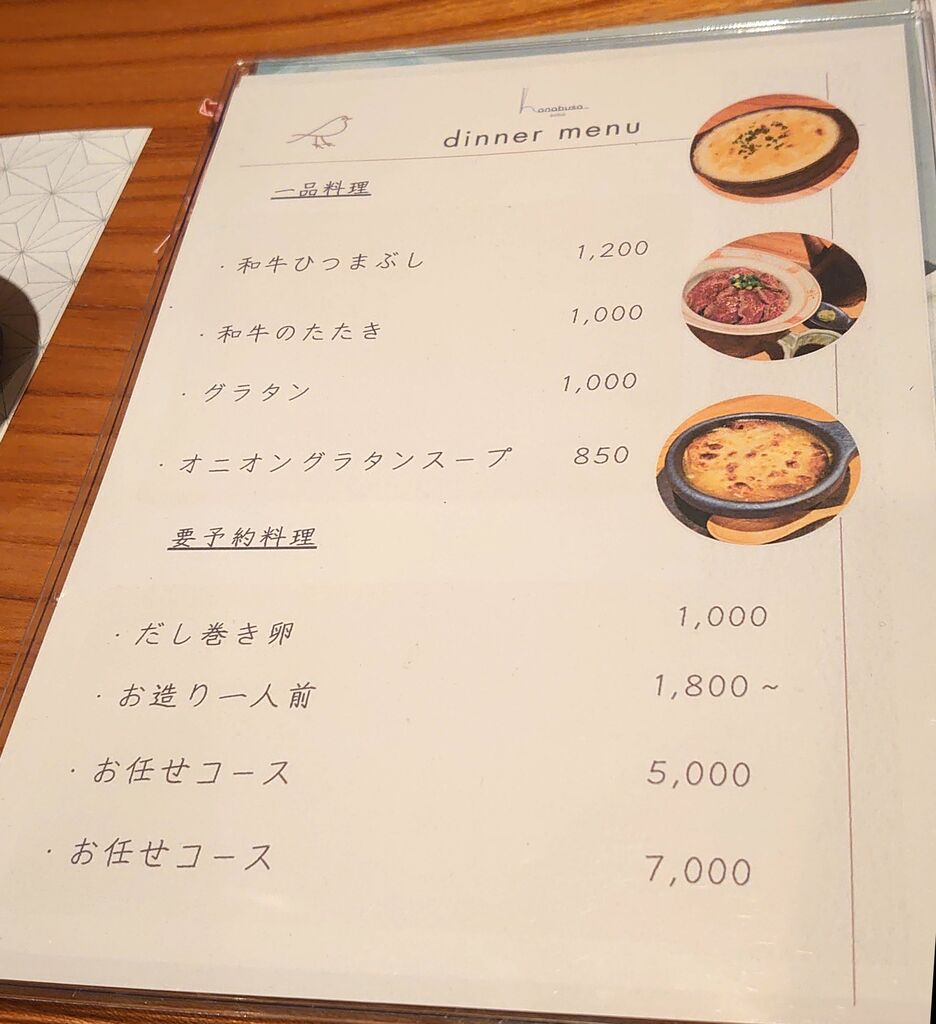 hanabusa
dinner menu
一品料理
・和牛ひつまぶし 1,200
・和牛のたたき 1,000
・グラタン 1,000
・オニオングラタンスープ 850
要予約料理
・だし巻き卵 1,000
・お造り一人前 1,800~
・お任せコース 5,000
・お任せコース 7,000